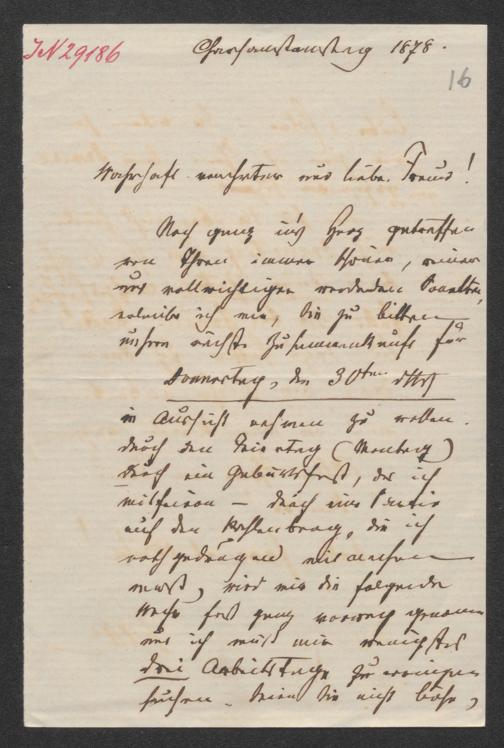 JN 29186
Charsamstagstag 1878.
16
Wahrhaft verehrter und lieber Freund!
Noch ganz in's Herz getroffen
von Ihren immer schönen, reinen
und vollwichtigen werdenden
erlaube ich mir, Sie zu bitten
unsere nächste Zusammenkunft für
Donnerstag, den 30ten dMts
in Aussicht nehmen zu wollen.
Durch den Feiertag (Montag)
durch ein Geburtsfest, das ich
mitfeiern – durch eine Partie
auf den Kahlenberg, die ich
nothgedrungen mitmachen
muss, wird mir die folgende
Woche fast ganz vorweg genommen
und ich muss mir wenigstens
drei Arbeitstage zu erringen
suchen. Seien Sie nicht böse,